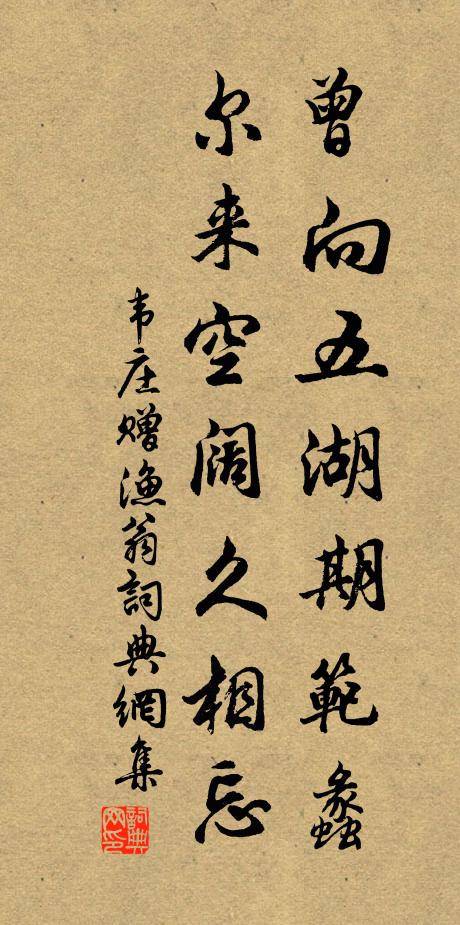 曾向五湖期範蠡
尔来空阔久相忘
韦庄赠漁翁詞典網集
詞典网印